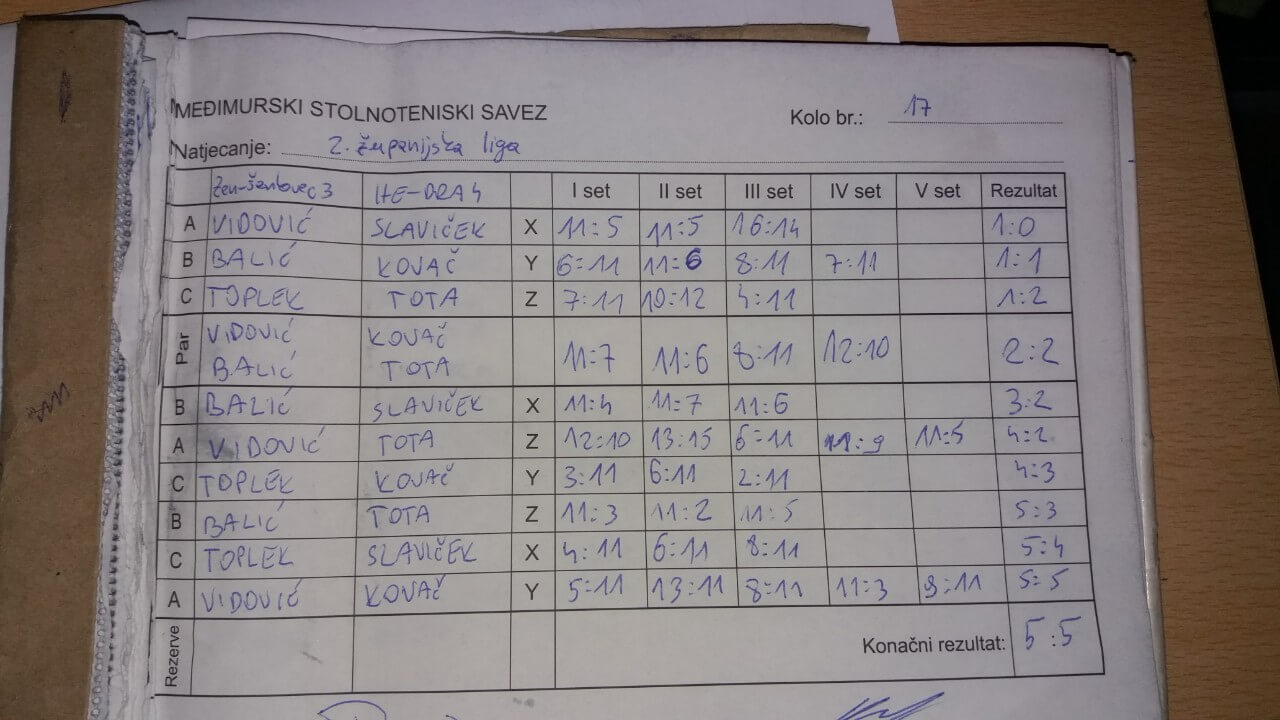 MEĐIMURSKI STOLNOTENISKI SAVEZ
Kolo br.: 17
Natjecanje: 2. županijska liga
Žen-Šenkovec 3 HE-DRA 4 I set II set III set IV set V set Rezultat
A VIDOVIĆ SLAVIČEK X 11:5 11:5 16:14 1:0
B BALIĆ KOVAČ Y 6:11 11:6 8:11 7:11 1:1
C TOPLEK TOTA Z 7:11 10:12 4:11 1:2
Par VIDOVIĆ KOVAČ
BALIĆ TOTA 11:7 11:6 8:11 12:10 2:2
B BALIĆ SLAVIČEK X 11:4 11:7 11:6 3:2
A VIDOVIĆ TOTA Z 12:10 13:15 6:11 11:9 11:5 4:2
C TOPLEK KOVAČ Y 3:11 6:11 2:11 4:3
B BALIĆ TOTA Z 11:3 11:2 11:5 5:3
C TOPLEK SLAVIČEK X 4:11 6:11 8:11 5:4
A VIDOVIĆ KOVAČ Y 5:11 13:11 8:11 11:3 9:11 5:5
Rezerve Konačni rezultat: 5:5